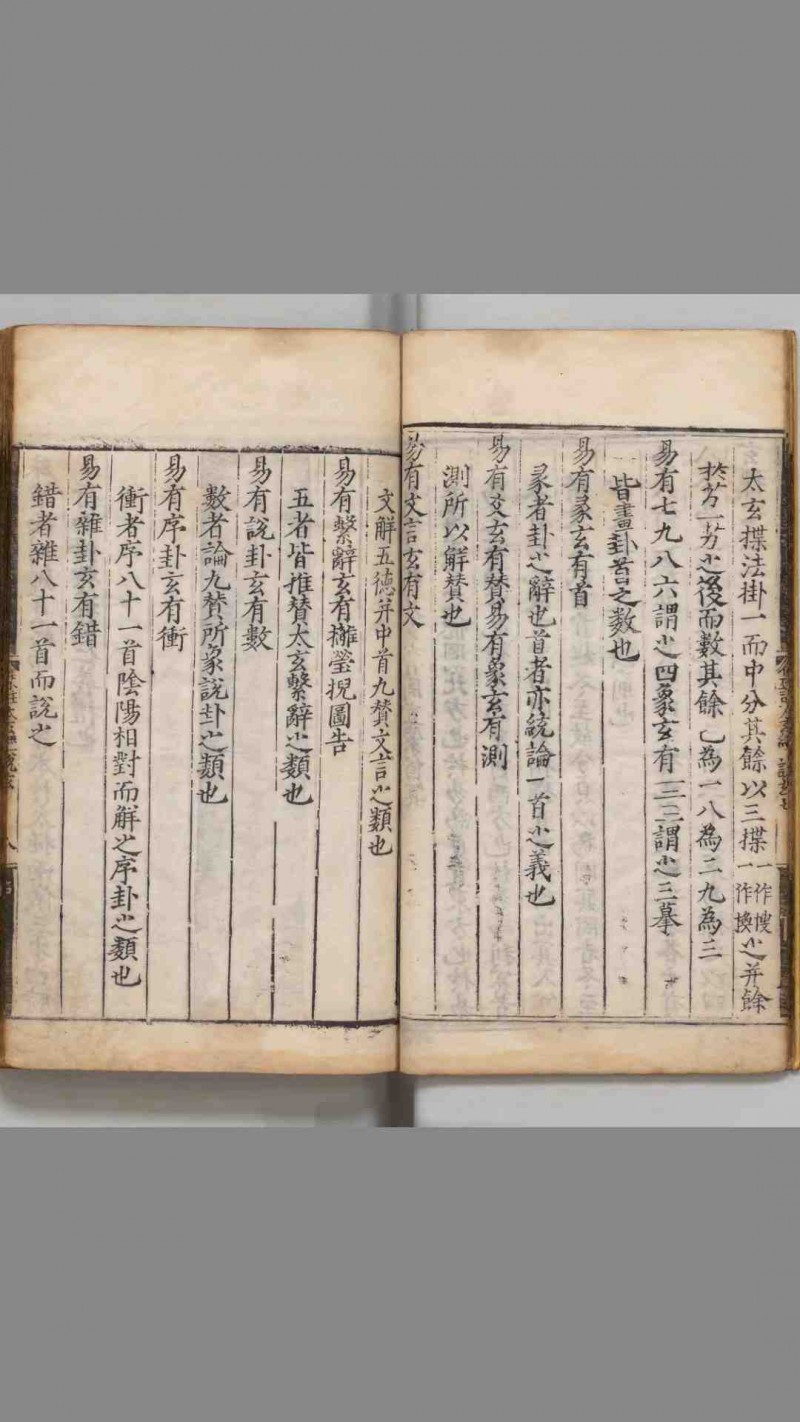 太玄揲法掛一而中分其餘以三揲一作搜一作換之并餘
於艻一艻之後而數其餘七為一八為二九為三
易有七九八六謂之四象玄有一二三謂之三摹
皆畫卦首之數也
易有彖玄有首
彖者卦之辭也首者亦統論一首之義也
易有爻玄有贊易有象玄有測
測所以解贊也
易有文言玄有文
文解五德并中首九贊文言之類也
易有繫辭玄有攡瑩掜圖告
五者皆推贊太玄繫辭之類也
易有說卦玄有數
數者論九贊所象說卦之類也
易有序卦玄有衝
衝者序八十一首陰陽相對而解之序卦之類也
易有雜卦玄有錯
錯者雜八十一首而說之